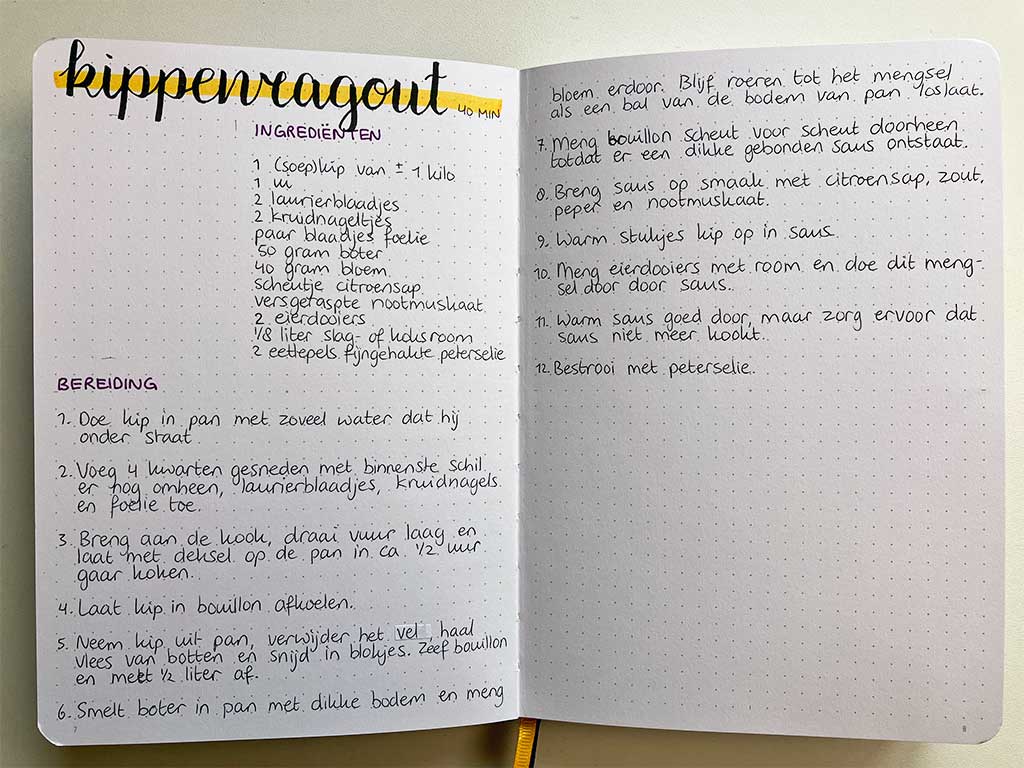 kippenragout
40 MIN
INGREDIËNTEN
1 (soep)kip van ± 1 kilo
1 ui
2 laurierblaadjes
2 kruidnageltjes
paar blaadjes foelie
50 gram boter
40 gram bloem
scheutje citroensap
versgeraspte nootmuskaat
2 eierdooiers
1/8 liter slag- of kookroom
2 eetlepels fijngehakte peterselie
BEREIDING
1. Doe kip in pan met zoveel water dat hij
onder staat.
2. Voeg 4 kwarten gesneden met binnenste schil
er nog omheen, laurierblaadjes, kruidnagels
en foelie toe.
3. Breng aan de kook, draai vuur laag en
laat met deksel op de pan in ca. 1/2 uur
gaar koken.
4. Laat kip in bouillon afkoelen.
5. Neem kip uit pan, verwijder het vel, haal
vlees van botten en snijd in blokjes. Zeef bouillon
en meet 1/2 liter af.
6. Smelt boter in pan met dikke bodem en meng
7
bloem erdoor. Blijf roeren tot het mengsel
als een bal van de bodem van pan loslaat.
7. Meng bouillon scheut voor scheut doorheen
totdat er een dikke gebonden saus ontstaat.
8. Breng saus op smaak met citroensap, zout,
peper en nootmuskaat.
9. Warm stukjes kip op in saus.
10. Meng eierdooiers met room en doe dit meng-
sel door door saus.
11. Warm saus goed door, maar zorg ervoor dat
saus niet meer kookt.
12. Bestrooi met peterselie.
8